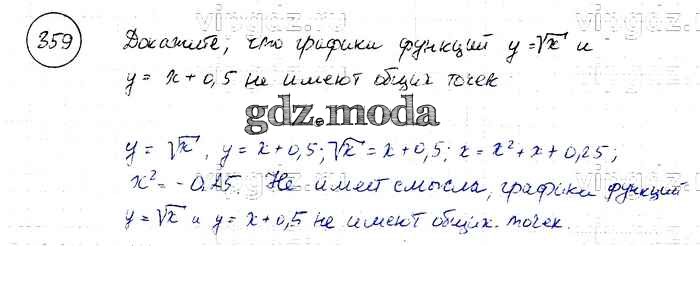 359 Докажите, что графики функций y = √x и
y = x + 0,5 не имеют общих точек
gdz.moda
y = √x, y = x + 0,5; √x = x + 0,5; x = x² + x + 0,25;
x² = -0,25. Не имеет смысла, графики функций
y = √x и y = x + 0,5 не имеют общих точек.